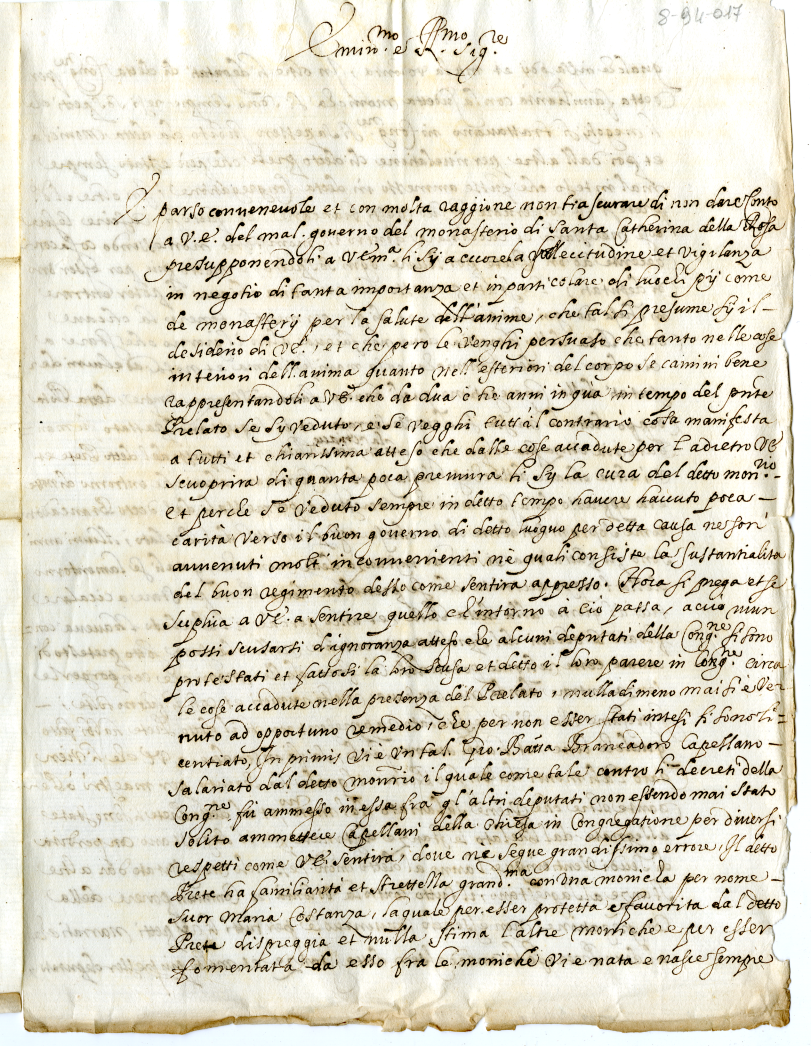 8-94-017
Emin.mo e R.mo Sig.re
È parso convenevole et con molta raggione non trascurare di non dare conto
a V.E. del mal. governo del monasterio di Santa Catherina della Rosa
presupponendoli a VEm.a li sy accuorela sollecitudine et vigilanza
in negotio di tanta importanza et in particolare di luochi pij come
de monasterij per la salute dell'anime, che tal si presume sy il-
desiderio di VE., et che pero le venghi persuaso che tanto nelle cose
interiori dell'anima quanto nell'esteriori del corpo se camini bene
rappresentandoli a VE. che da dua o tre anni in qua in tempo del pnte
Prelato se sy veduto, e se vegghi tutt'il contrario cosa manifesta
a tutti et chiarissima atteso che dalle cose accadute per l'adietro VE
scuoprira di quanta poca premura li sy la cura del detto mon.rio
et perche s'è veduto sempre in detto tempo havere havuto poca-
carità verso il buon governo di detto luogo per detta causa ne son'
avvenuti molt'inconvenienti ne quali consiste la sustantialita
del buon regimento desso come sentira appresso. Hora si prega et se
suplica a VE. a sentire quello ch'intorno à ciò passa, acciò niun
possi scusarsi d'ignoranza atteso che alcuni deputati della Cong.ne si sono
protestati et fattosi la loro scusa et detto il loro parere in Cong.ne circa
le cose accadute nella presenza del Prelato, nulladimeno mai si è ve=
nuto ad opportuno remedio, che per non esser stati intesi si sono li=
centiato, In primis vi è un tal Gio: Batta Brancadoro Capellano-
salariato dal detto mon.rio il quale come tale contro li decreti della
Cong.ne fù ammesso in essa fra gl'altri deputati non essendo mai stato
solito ammettere Capellani della chiesa in Congregatione per diversi
respetti come VE sentira, dove ne segue grandissimo errore, Il detto
Prete ha familiarità et strettezza grand.ma con una monicha per nome-
Suor Maria Costanza, la quale per esser protetta e favorita dal detto
Prete dispreggia et nulla stima l'altre moniche e per esser
fomentata da esso fra le moniche vi e nata e nasce sempre